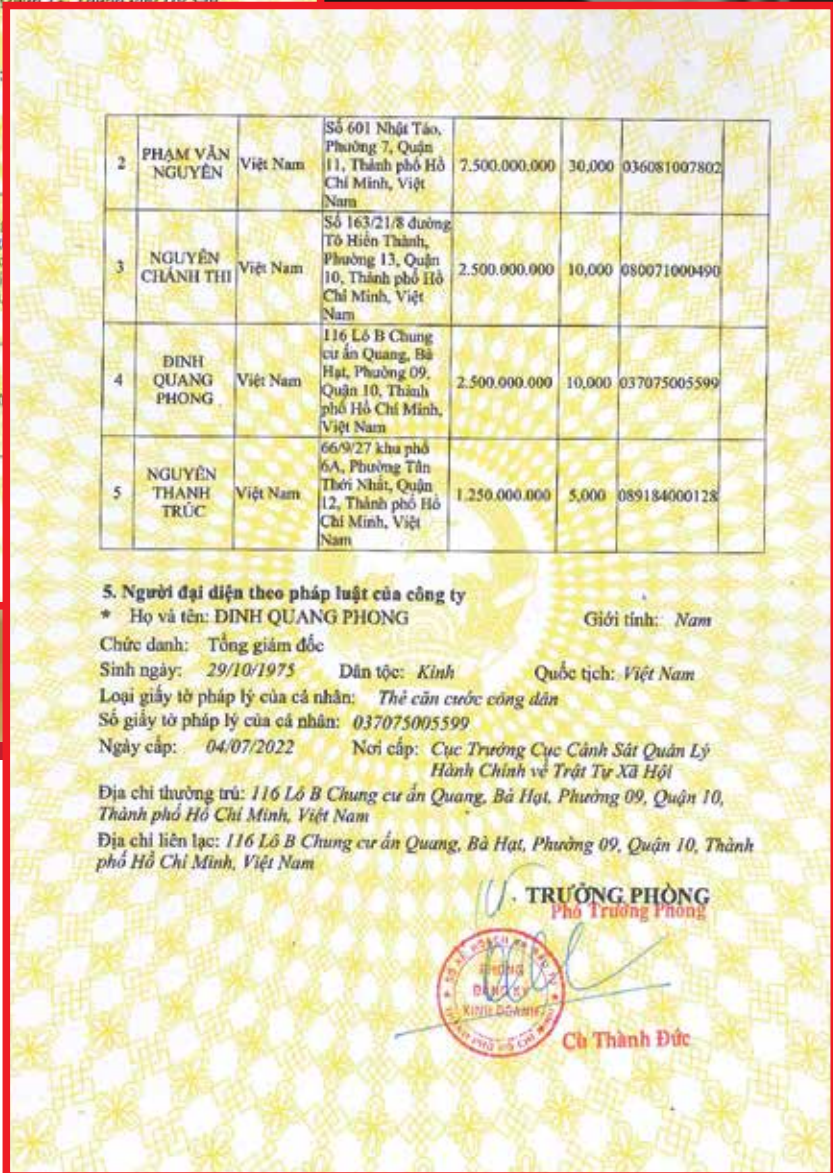 2 PHẠM VĂN NGUYÊN Việt Nam Số 601 Nhật Tảo, Phường 7, Quận 11, Thành phố Hồ Chí Minh, Việt Nam 7.500.000.000 30,000 036081007802
3 NGUYỄN CHÁNH THI Việt Nam Số 163/21/8 đường Tô Hiến Thành, Phường 13, Quận 10, Thành phố Hồ Chí Minh, Việt Nam 2.500.000.000 10,000 080071000490
4 ĐINH QUANG PHONG Việt Nam 116 Lô B Chung cư ấn Quang, Bà Hạt, Phường 09, Quận 10, Thành phố Hồ Chí Minh, Việt Nam 2.500.000.000 10,000 037075005599
5 NGUYỄN THANH TRÚC Việt Nam 66/9/27 khu phố 6A, Phường Tân Thới Nhất, Quận 12, Thành phố Hồ Chí Minh, Việt Nam 1.250.000.000 5,000 089184000128
5. Người đại diện theo pháp luật của công ty
* Họ và tên: ĐINH QUANG PHONG Giới tính: Nam
Chức danh: Tổng giám đốc
Sinh ngày: 29/10/1975 Dân tộc: Kinh Quốc tịch: Việt Nam
Loại giấy tờ pháp lý của cá nhân: Thẻ căn cước công dân
Số giấy tờ pháp lý của cá nhân: 037075005599
Ngày cấp: 04/07/2022 Nơi cấp: Cục Trưởng Cục Cảnh Sát Quản Lý
Hành Chính về Trật Tự Xã Hội
Địa chỉ thường trú: 116 Lô B Chung cư ấn Quang, Bà Hạt, Phường 09, Quận 10,
Thành phố Hồ Chí Minh, Việt Nam
Địa chỉ liên lạc: 116 Lô B Chung cư ấn Quang, Bà Hạt, Phường 09, Quận 10, Thành
phố Hồ Chí Minh, Việt Nam
TRƯỞNG PHÒNG
Phó Trưởng Phòng
PHÒNG
ĐĂNG KÝ
KINH DOANH
Cù Thành Đức